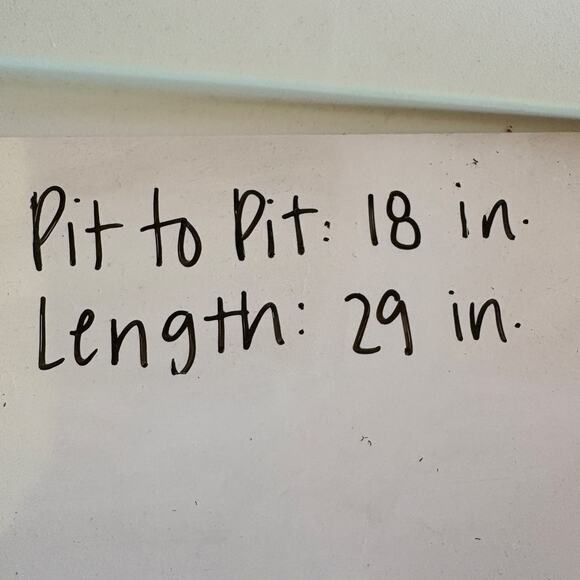 Pit to Pit: 18 in.
Length: 29 in.